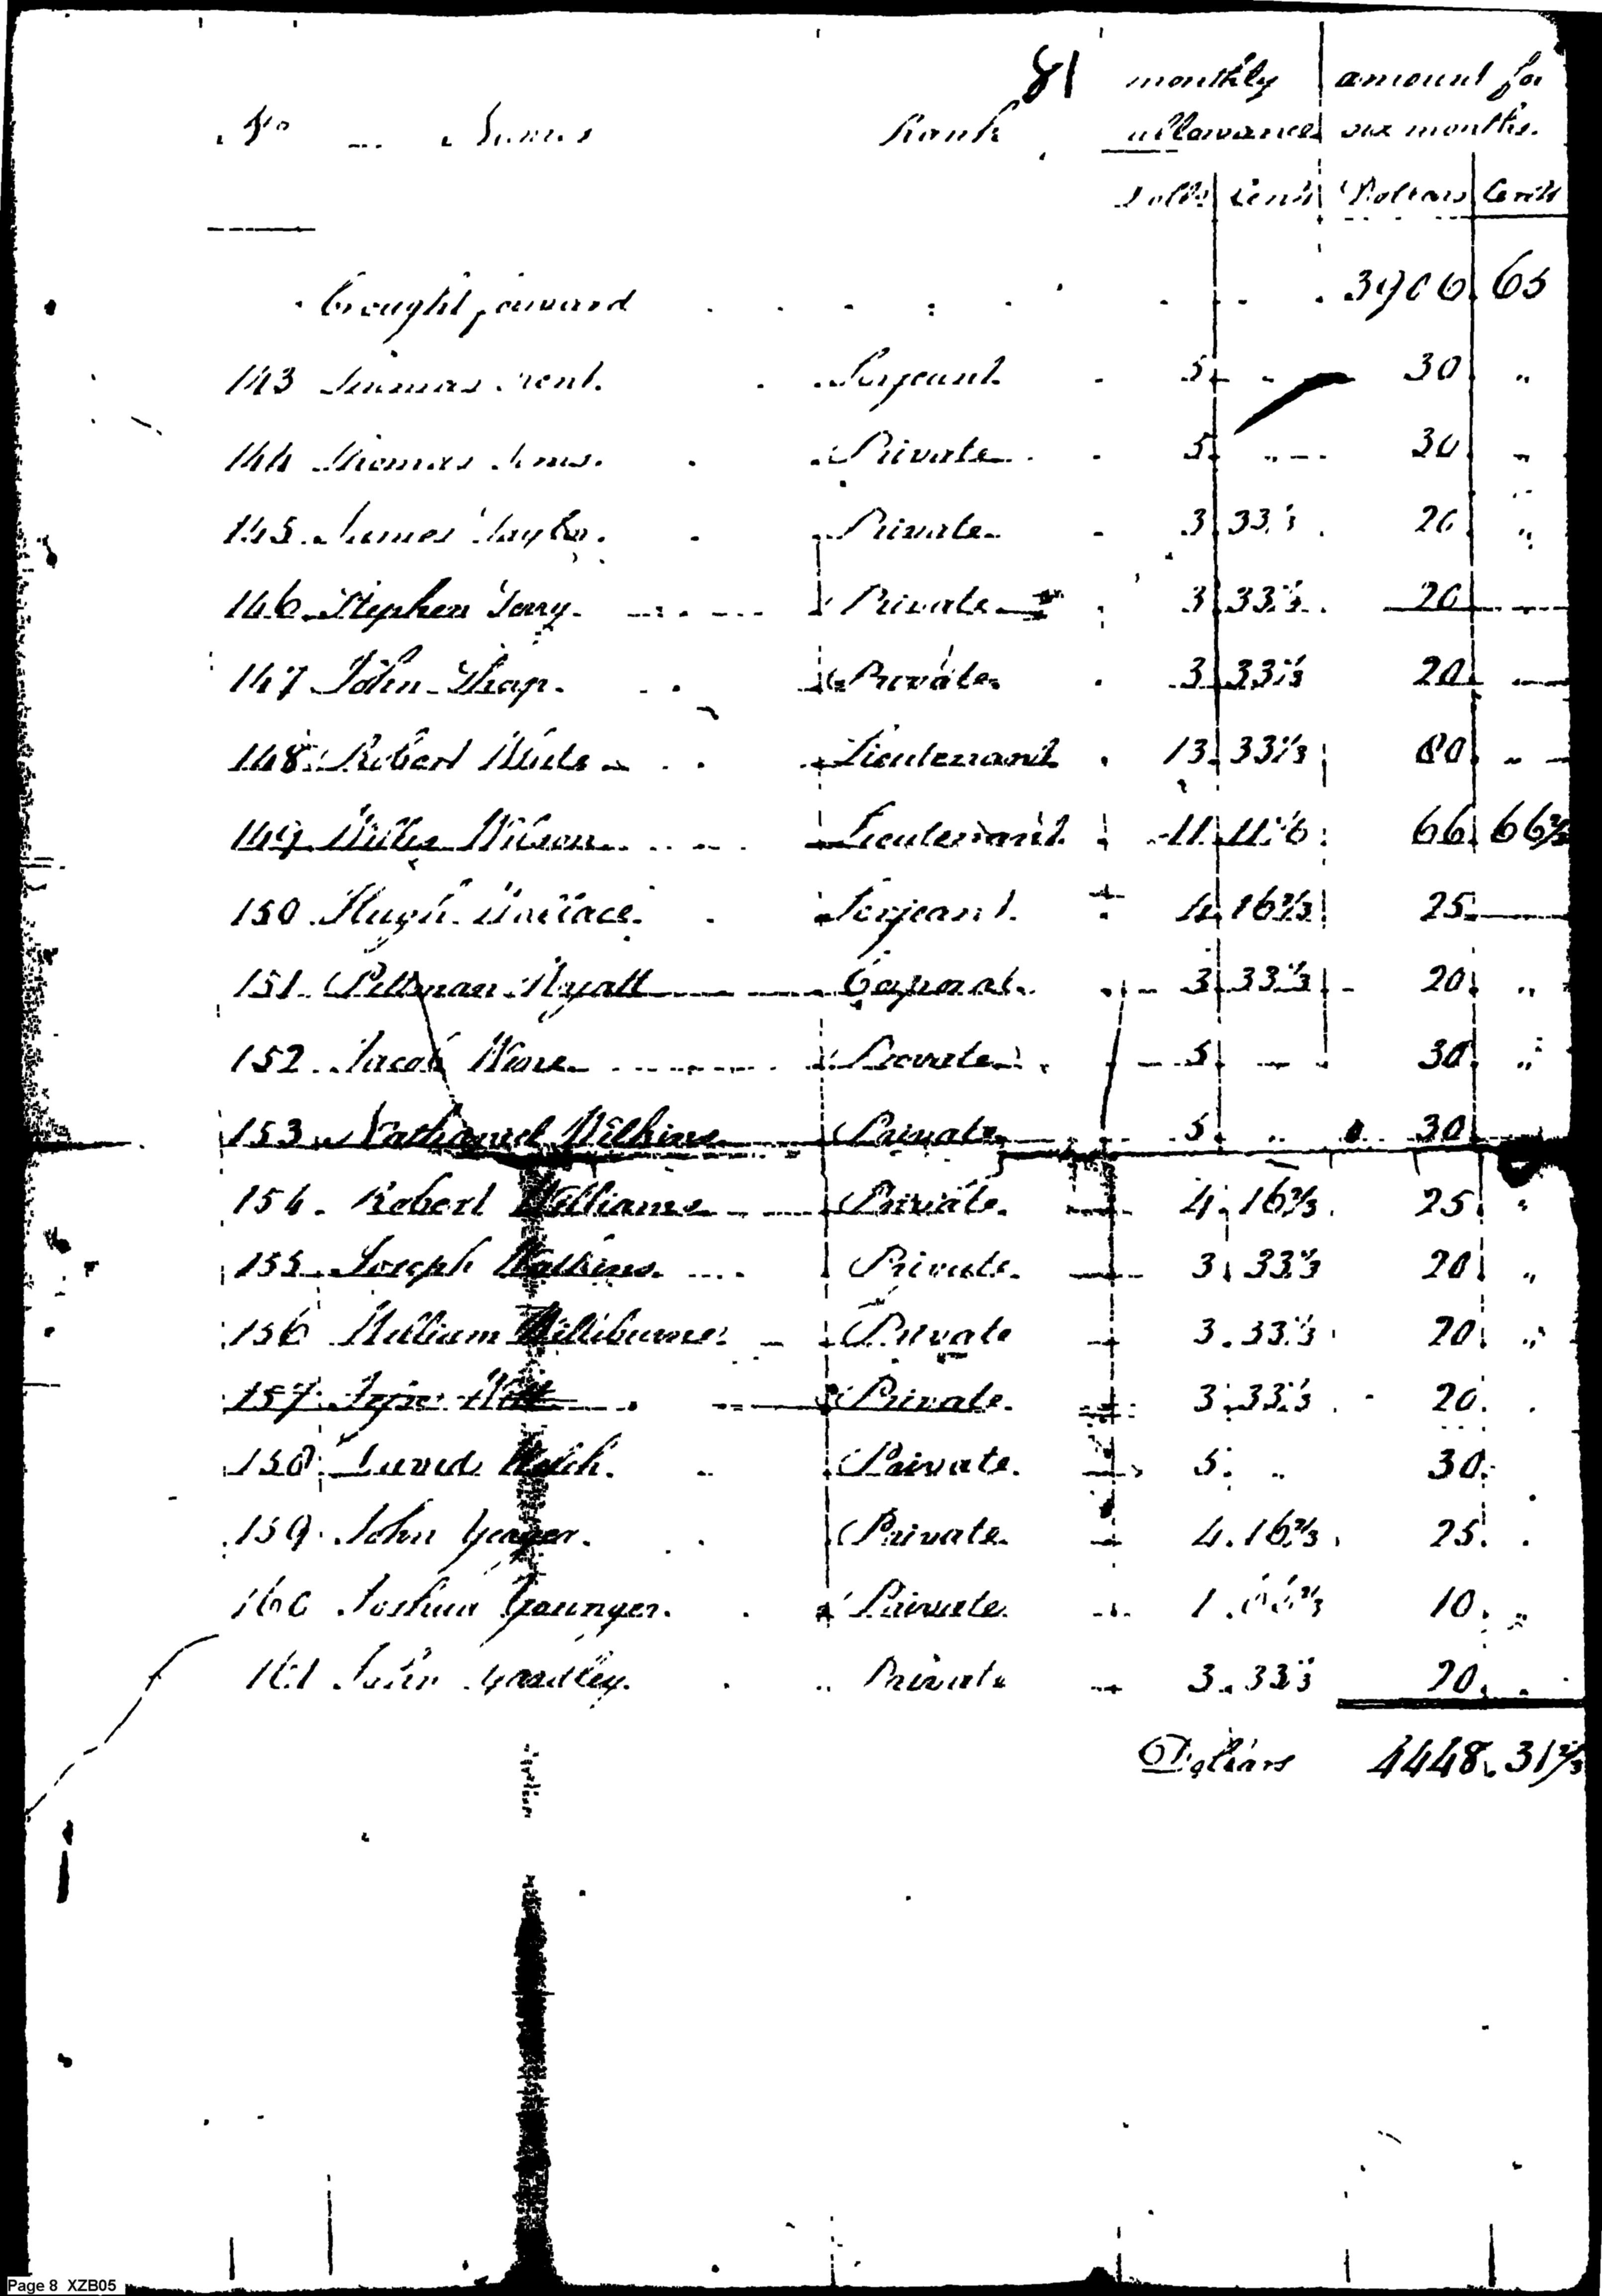 81 monthly amount for
No Names Rank allowance six months.
Dolls Cents Dollars Cents
brought forward 3906 65
143 Thomas Serjeant. 5 30 "
144 Thomas Private 5 " 30 "
145 James Taylor. Private 3 33⅓ 20 "
146 Stephen Terry. Private 3 33⅓ 20
147 John Private 3 33⅓ 20
148 Robert White Lieutenant 13 33⅓ 80 "
149 Willis Wilson Lieutenant 11 66 66⅔
150 Hugh Wallace. Serjeant. 4 16⅔ 25
151 Pittman Wyatt Corporal. 3 33⅓ 20 "
152 Jacob Ware Private 5 30 "
153 Nathaniel Wilkins Private 5 " 30
154 Robert Williams Private. 4 16⅔ 25 "
155 Joseph Watkins. Private. 3 33⅓ 20 "
156 William Williburne Private 3 33⅓ 20 "
157 Private. 3 33⅓ 20
158 David Welch. Private. 5 " 30
159 John Yeager. Private. 4 16⅔ 25
160 Joshua Younger. Private. 1 66⅔ 10 "
161 John Yardley. Private 3 33⅓ 20
Dollars 4448. 31⅔
Page 8 XZB05